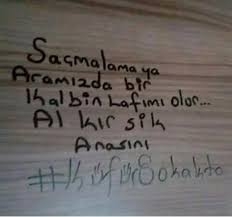 Saçmalama ya
Aramızda bir
Kalbin Lafımı olor...
Al kır sik
Anasını
#KüfürSokakta